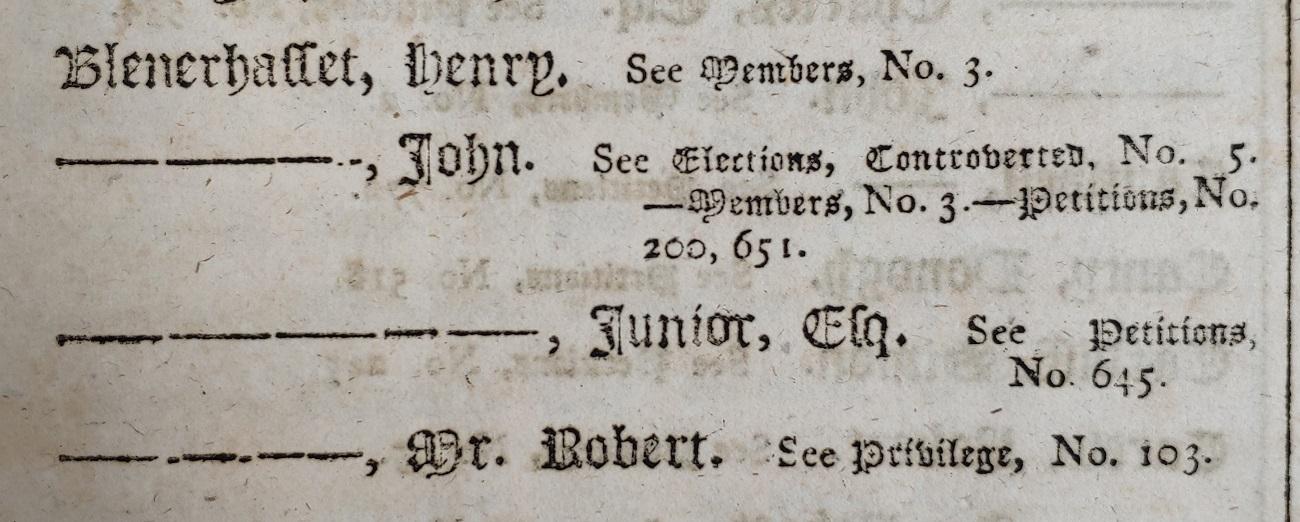 Blenerhaſſet, Henry. See Members, No. 3.
———, John. See Elections, Controverted, No. 5.
—Members, No. 3.—Petitions, No.
200, 651.
—————, Junior, Eſq. See Petitions,
No. 645.
———, Mr. Robert. See Privilege, No. 103.